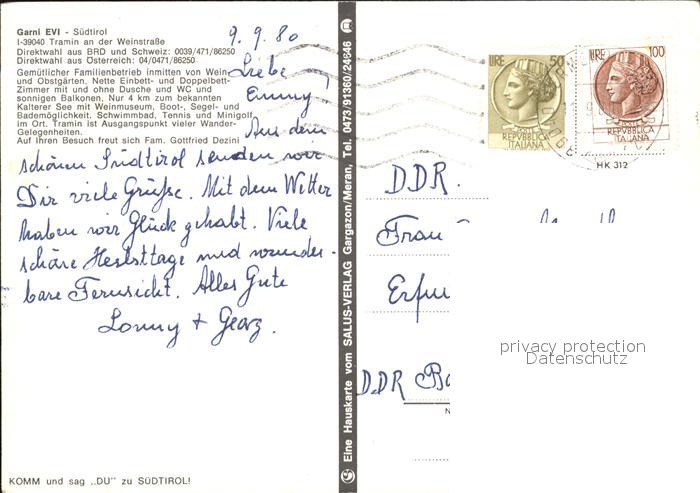 Garni EVI - Südtirol
I-39040 Tramin an der Weinstraße
Direktwahl aus BRD und Schweiz: 0039/471/86250
Direktwahl aus Österreich: 04/0471/86250
Gemütlicher Familienbetrieb inmitten von Wein-
und Obstgärten. Nette Einbett- und Doppelbett-
Zimmer mit und ohne Dusche und WC und
sonnigen Balkonen. Nur 4 km zum bekannten
Kalterer See mit Weinmuseum, Boot-, Segel- und
Bademöglichkeit. Schwimmbad, Tennis und Minigolf
im Ort. Tramin ist Ausgangspunkt vieler Wander-
Gelegenheiten.
Auf Ihren Besuch freut sich Fam. Gottfried Dezini
9.9.80
Liebe
Emmy!
Aus dem
schönen Südtirol senden wir
Dir viele Grüße. Mit dem Wetter
haben wir Glück gehabt. Viele
schöne Herbsttage und wunder-
bare Fernsicht. Alles Gute
Lonny + Georg.
KOMM und sag „DU" zu SÜDTIROL!
Eine Hauskarte vom SALUS-VERLAG Gargazon/Meran, Tel. 0473/91360/24646
LIRE 50
REPVBBLICA
ITALIANA
LIRE 100
REPVBBLICA
ITALIANA
HK 312
DDR.
Frau
Erfu
DDR
privacy protection
Datenschutz